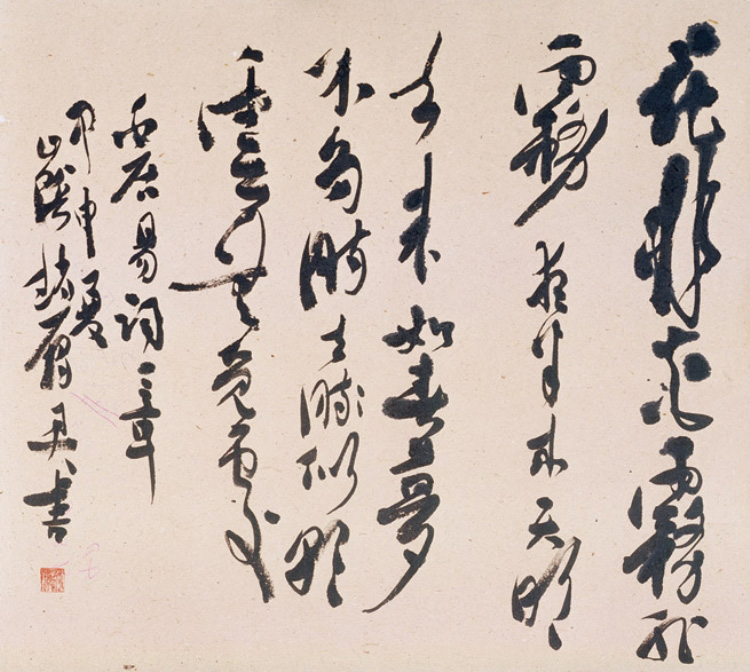 花非花霧非
霧夜半來天明
去來如春夢
不多時去時似朝
雲無覓處
白居易詞一章
甲申夏
書